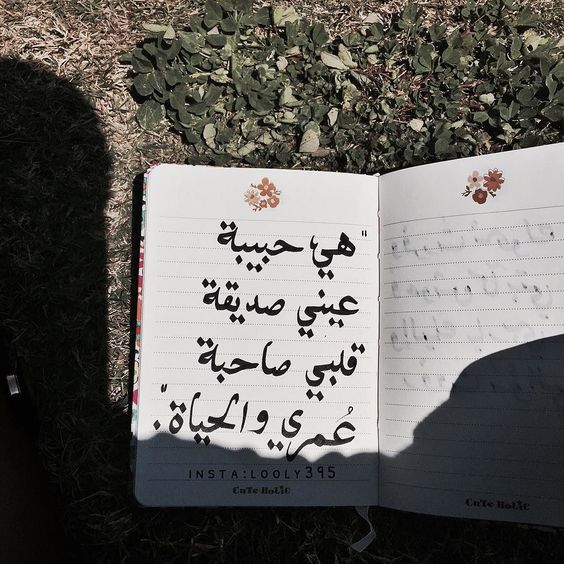 "هي حبيبة
عيني صديقة
قلبي صاحبة
عُمري والحياة".
INSTA:LOOLY395
CuTe HoLiC
CuTe HoLiC